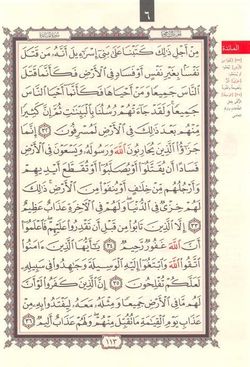 ٦
المائدة
مِنْ أَجْلِ ذَٰلِكَ كَتَبْنَا عَلَىٰ بَنِىٓ إِسْرَٰٓءِيلَ أَنَّهُۥ مَن قَتَلَ
نَفْسًۢا بِغَيْرِ نَفْسٍ أَوْ فَسَادٍ فِى ٱلْأَرْضِ فَكَأَنَّمَا قَتَلَ
ٱلنَّاسَ جَمِيعًا وَمَنْ أَحْيَاهَا فَكَأَنَّمَآ أَحْيَا ٱلنَّاسَ
جَمِيعًا ۚ وَلَقَدْ جَآءَتْهُمْ رُسُلُنَا بِٱلْبَيِّنَٰتِ ثُمَّ إِنَّ كَثِيرًا
مِّنْهُم بَعْدَ ذَٰلِكَ فِى ٱلْأَرْضِ لَمُسْرِفُونَ ٣٢ إِنَّمَا
جَزَٰٓؤُا۟ ٱلَّذِينَ يُحَارِبُونَ ٱللَّهَ وَرَسُولَهُۥ وَيَسْعَوْنَ فِى ٱلْأَرْضِ
فَسَادًا أَن يُقَتَّلُوٓا۟ أَوْ يُصَلَّبُوٓا۟ أَوْ تُقَطَّعَ أَيْدِيهِمْ
وَأَرْجُلُهُم مِّنْ خِلَٰفٍ أَوْ يُنفَوْا۟ مِنَ ٱلْأَرْضِ ۚ ذَٰلِكَ
لَهُمْ خِزْىٌ فِى ٱلدُّنْيَا ۖ وَلَهُمْ فِى ٱلْءَاخِرَةِ عَذَابٌ عَظِيمٌ
٣٣ إِلَّا ٱلَّذِينَ تَابُوا۟ مِن قَبْلِ أَن تَقْدِرُوا۟ عَلَيْهِمْ ۖ فَٱعْلَمُوٓا۟
أَنَّ ٱللَّهَ غَفُورٌ رَّحِيمٌ ٣٤ يَٰٓأَيُّهَا ٱلَّذِينَ ءَامَنُوا۟
ٱتَّقُوا۟ ٱللَّهَ وَٱبْتَغُوٓا۟ إِلَيْهِ ٱلْوَسِيلَةَ وَجَٰهِدُوا۟ فِى سَبِيلِهِۦ
لَعَلَّكُمْ تُفْلِحُونَ ٣٥ إِنَّ ٱلَّذِينَ كَفَرُوا۟ لَوْ أَنَّ
لَهُم مَّا فِى ٱلْأَرْضِ جَمِيعًا وَمِثْلَهُۥ مَعَهُۥ لِيَفْتَدُوا۟ بِهِۦ مِنْ
عَذَابِ يَوْمِ ٱلْقِيَٰمَةِ مَا تُقُبِّلَ مِنْهُمْ ۖ وَلَهُمْ عَذَابٌ أَلِيمٌ ٣٦
١١٣